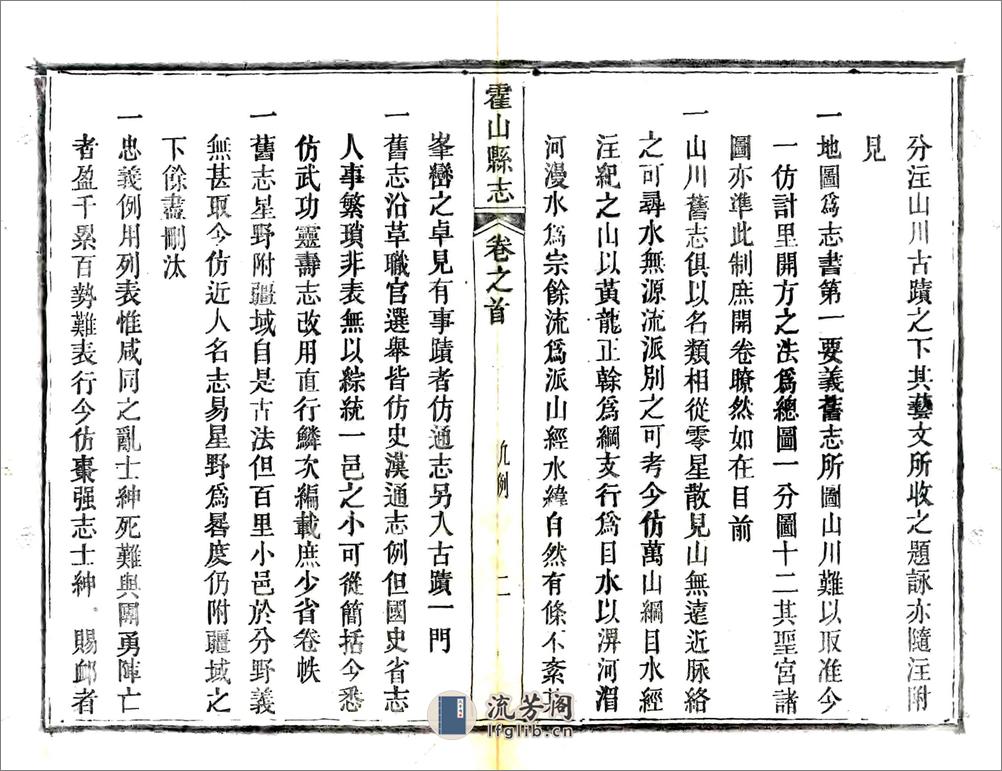 分注山川古蹟之下其藝文所收之題詠亦隨注附
見
一地圖爲志書第一要義舊志所圖山川難以取准今
一仿計里開方之法爲總圖一分圖十二其聖宮諸
圖亦準此制庶開卷瞭然如在目前
一山川舊志俱以名類相從零星散見山無遠近脉絡
之可尋水無源流派別之可考今仿萬山綱目水經
注紀之山以黃龍正榦爲綱支行爲目水以淠河淠
河漫水爲宗餘流爲派山經水緯自然有條不紊
霍山縣志
卷之首
凡例
二
峯巒之卓見有事蹟者仿通志另入古蹟一門
一舊志沿革職官選舉皆仿史漢通志例但國史省志
人事繁瑣非表無以綜統一邑之小可從簡括今悉
仿武功靈壽志改用直行鱗次編載庶少省卷帙
一舊志星野附疆域自是古法但百里小邑於分野義
無甚取今仿近人名志易星野爲晷度仍附疆域之
下餘盡刪汰
一忠義例用列表惟咸同之亂士紳死難與團勇陣亡
者盈千累百勢難表行今仿棗强志士紳 賜䘏者
流芳阁
lfglib.cn